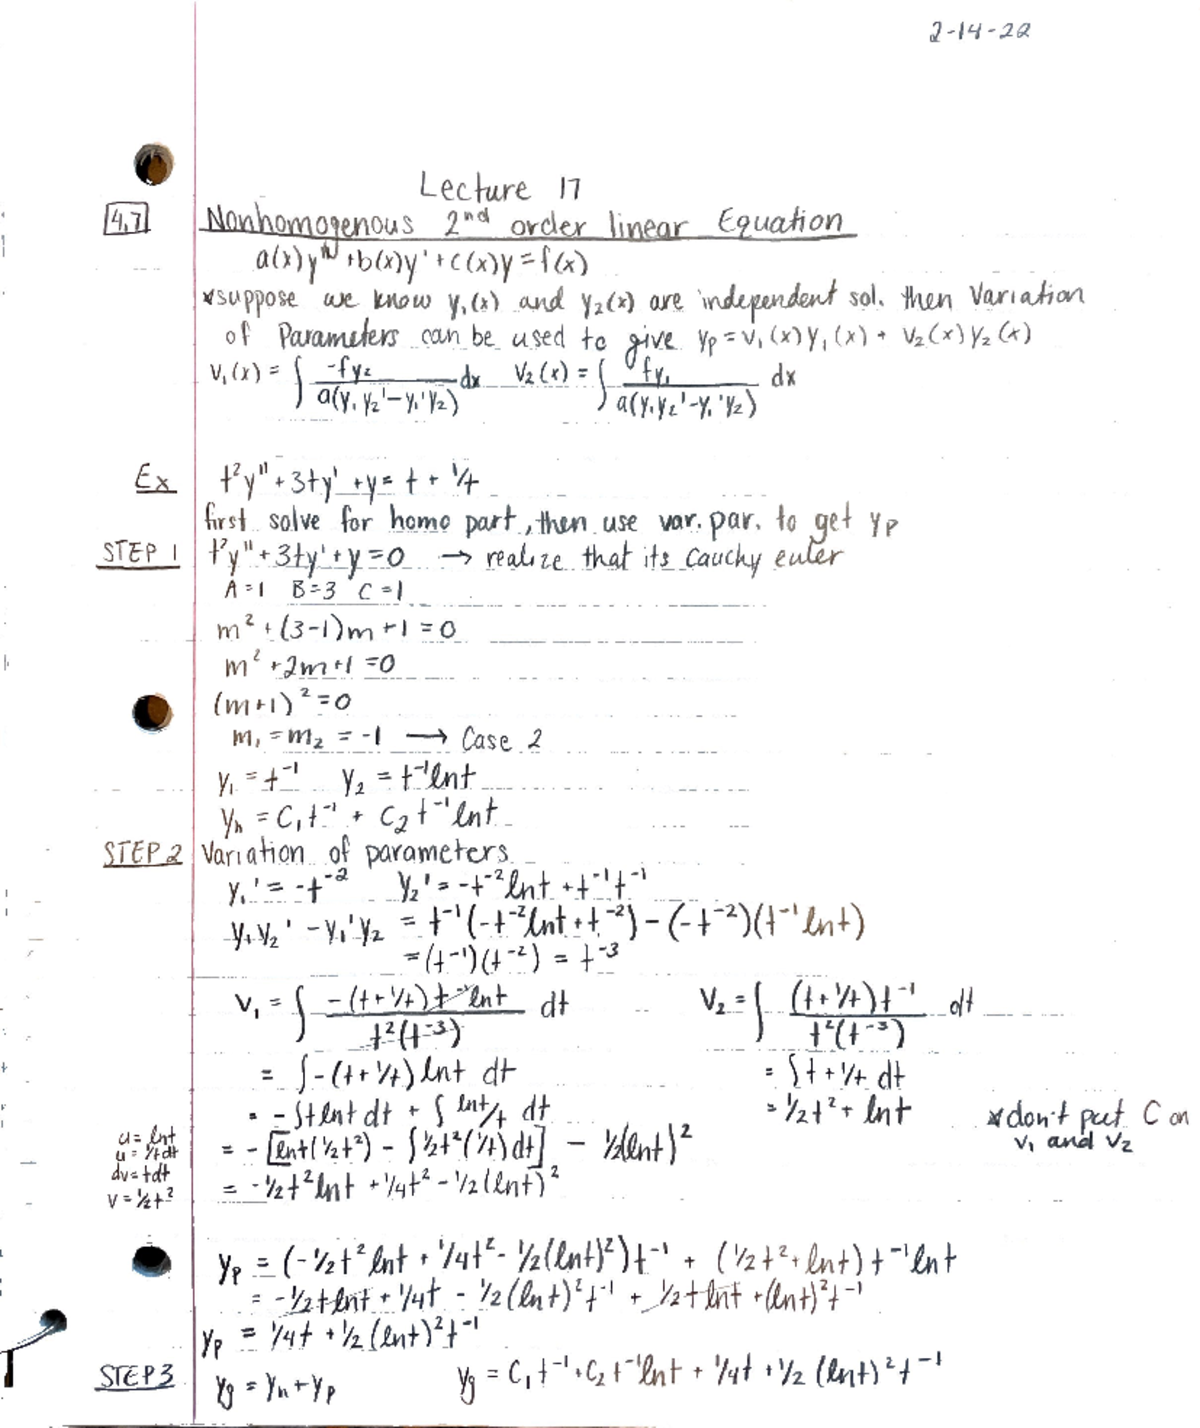 2-14-22
Lecture 17
4.7 Nonhomogenous 2nd order linear Equation
a(x)y'' + b(x)y' + c(x)y = f(x)
*suppose we know y₁(x) and y₂(x) are independent sol. then Variation
of Parameters can be used to give yp = v₁(x)y₁(x) + v₂(x)y₂(x)
v₁(x) = ∫ -fy₂ / a(y₁y₂' - y₁'y₂) dx   v₂(x) = ∫ fy₁ / a(y₁y₂' - y₁'y₂) dx
Ex t²y'' + 3ty' + y = t + 1/t
first solve for homo part, then use var. par. to get yp
STEP 1 t²y'' + 3ty' + y = 0 → realize that its Cauchy euler
A=1 B=3 C=1
m² + (3-1)m + 1 = 0
m² + 2m + 1 = 0
(m+1)² = 0
m₁ = m₂ = -1 → Case 2
y₁ = t⁻¹   y₂ = t⁻¹lnt
yh = C₁t⁻¹ + C₂t⁻¹lnt
STEP 2 Variation of parameters
y₁' = -t⁻²   y₂' = -t⁻²lnt + t⁻¹t⁻¹
y₁y₂' - y₁'y₂ = t⁻¹(-t⁻²lnt + t⁻²) - (-t⁻²)(t⁻¹lnt)
= (t⁻¹)(t⁻²) = t⁻³
v₁ = ∫ -(t + 1/t)t⁻¹lnt / t²(t⁻³) dt   v₂ = ∫ (t + 1/t)t⁻¹ / t²(t⁻³) dt
= ∫-(t + 1/t)lnt dt   = ∫t + 1/t dt
= -∫tlnt dt + ∫ lnt/t dt   = 1/2t² + lnt   *don't put C on
v₁ and v₂
u = lnt
u = 1/t dt
dv = tdt
v = 1/2t²
= -[lnt(1/2t²) - ∫1/2t²(1/t)dt] - 1/2(lnt)²
= -1/2t²lnt + 1/4t² - 1/2(lnt)²
yp = (-1/2t²lnt + 1/4t² - 1/2(lnt)²)t⁻¹ + (1/2t² + lnt)t⁻¹lnt
= -1/2tlnt + 1/4t - 1/2(lnt)²t⁻¹ + 1/2tlnt + (lnt)²t⁻¹
yp = 1/4t + 1/2(lnt)²t⁻¹
STEP 3 yg = yh + yp   yg = C₁t⁻¹ + C₂t⁻¹lnt + 1/4t + 1/2(lnt)²t⁻¹